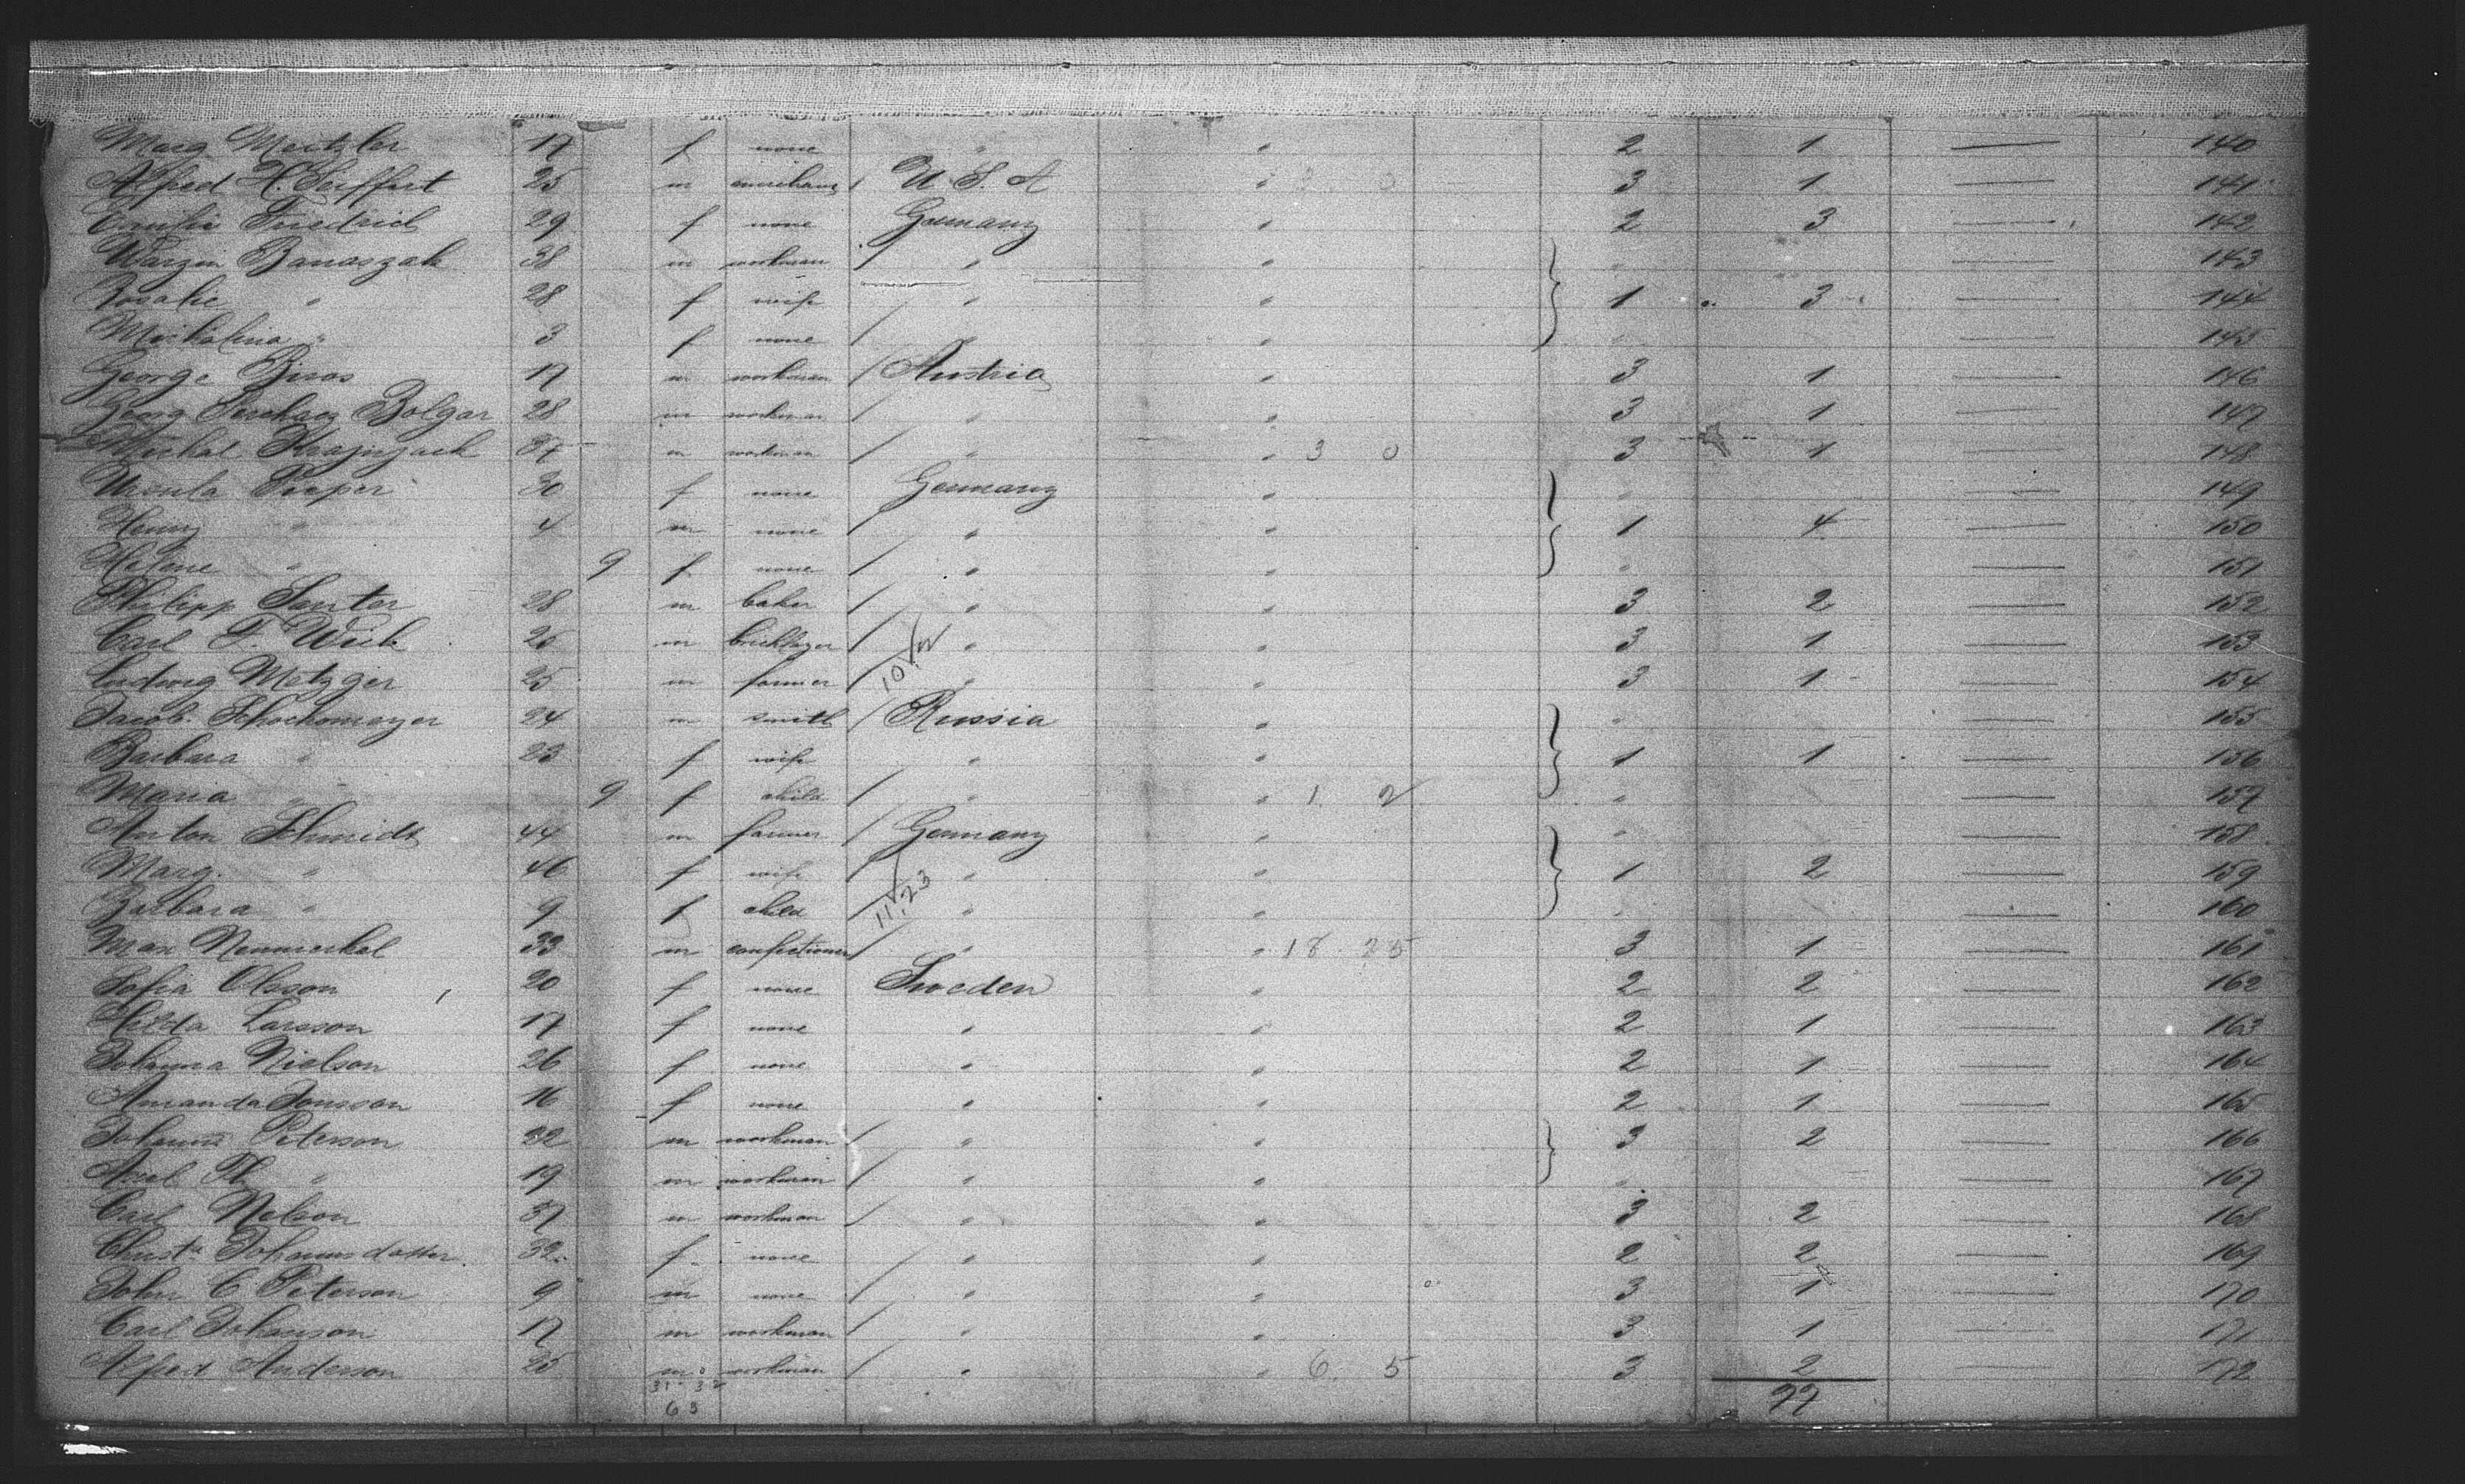 Marg. Meitzler 17 f none " " 2 1 — 140
Alfred H. Seiffert 25 m merchant / U. S. A " 2 0 3 1 — 141
Emilie Friedrich 29 f none Germany " 2 3 — 142
Banaszak 38 m workman / " " " — 143
Rosalie " 28 f wife " " 1 3 — 144
Michalina " 3 f none / " " " — 145
George Biros 17 m workman / Austria " 3 1 — 146
Georg Bolgar 28 m workman / " " 3 1 — 147
Michal 37 m workman / " " 3 0 3 1 — 148
Ursula Pieper 30 f none Germany " " — 149
Henny " 4 m none / " " 1 4 — 150
Helene " 9 f none / " " " — 151
Philipp Santer 28 m baker / " " 3 2 — 152
Carl F. Weik 25 m bricklayer / " " 3 1 — 153
10/12
Ludwig Metzger 25 m farmer / " " 3 1 — 154
Jacob Schochomayer 24 m smith / Russia " " — 155
Barbara " 23 f wife " " 1 1 — 156
Maria " 9 f child / " " 1 2 " — 157
Anton Schmidt 44 m farmer / Germany " " — 158
Marg. " 46 f wife / " " 1 2 — 159
11/23
Barbara " 9 f child / " " " — 160
Max Neumerkel 33 m confectioner / " " 18 25 3 1 — 161
Sofia Olsson 20 f none Sweden " 2 2 — 162
Hilda Larsson 17 f none " " 2 1 — 163
Johanna Nielson 26 f none " " 2 1 — 164
Amanda Jonsson 16 f none " " 2 1 — 165
Peterson 22 m workman / " " 3 2 — 166
Axel Th. " 19 m workman / " " " — 167
Carl Nelson 37 m workman / " " 3 2 — 168
Christa Johannsdotter 32 f none " " 2 2 — 169
John C. Peterson 9 m none / " " 3 1 — 170
Carl Johanson 17 m workman / " " 3 1 — 171
Alfred Anderson 25 m workman / " " 6 5 3 2 — 172
31 32
63 77